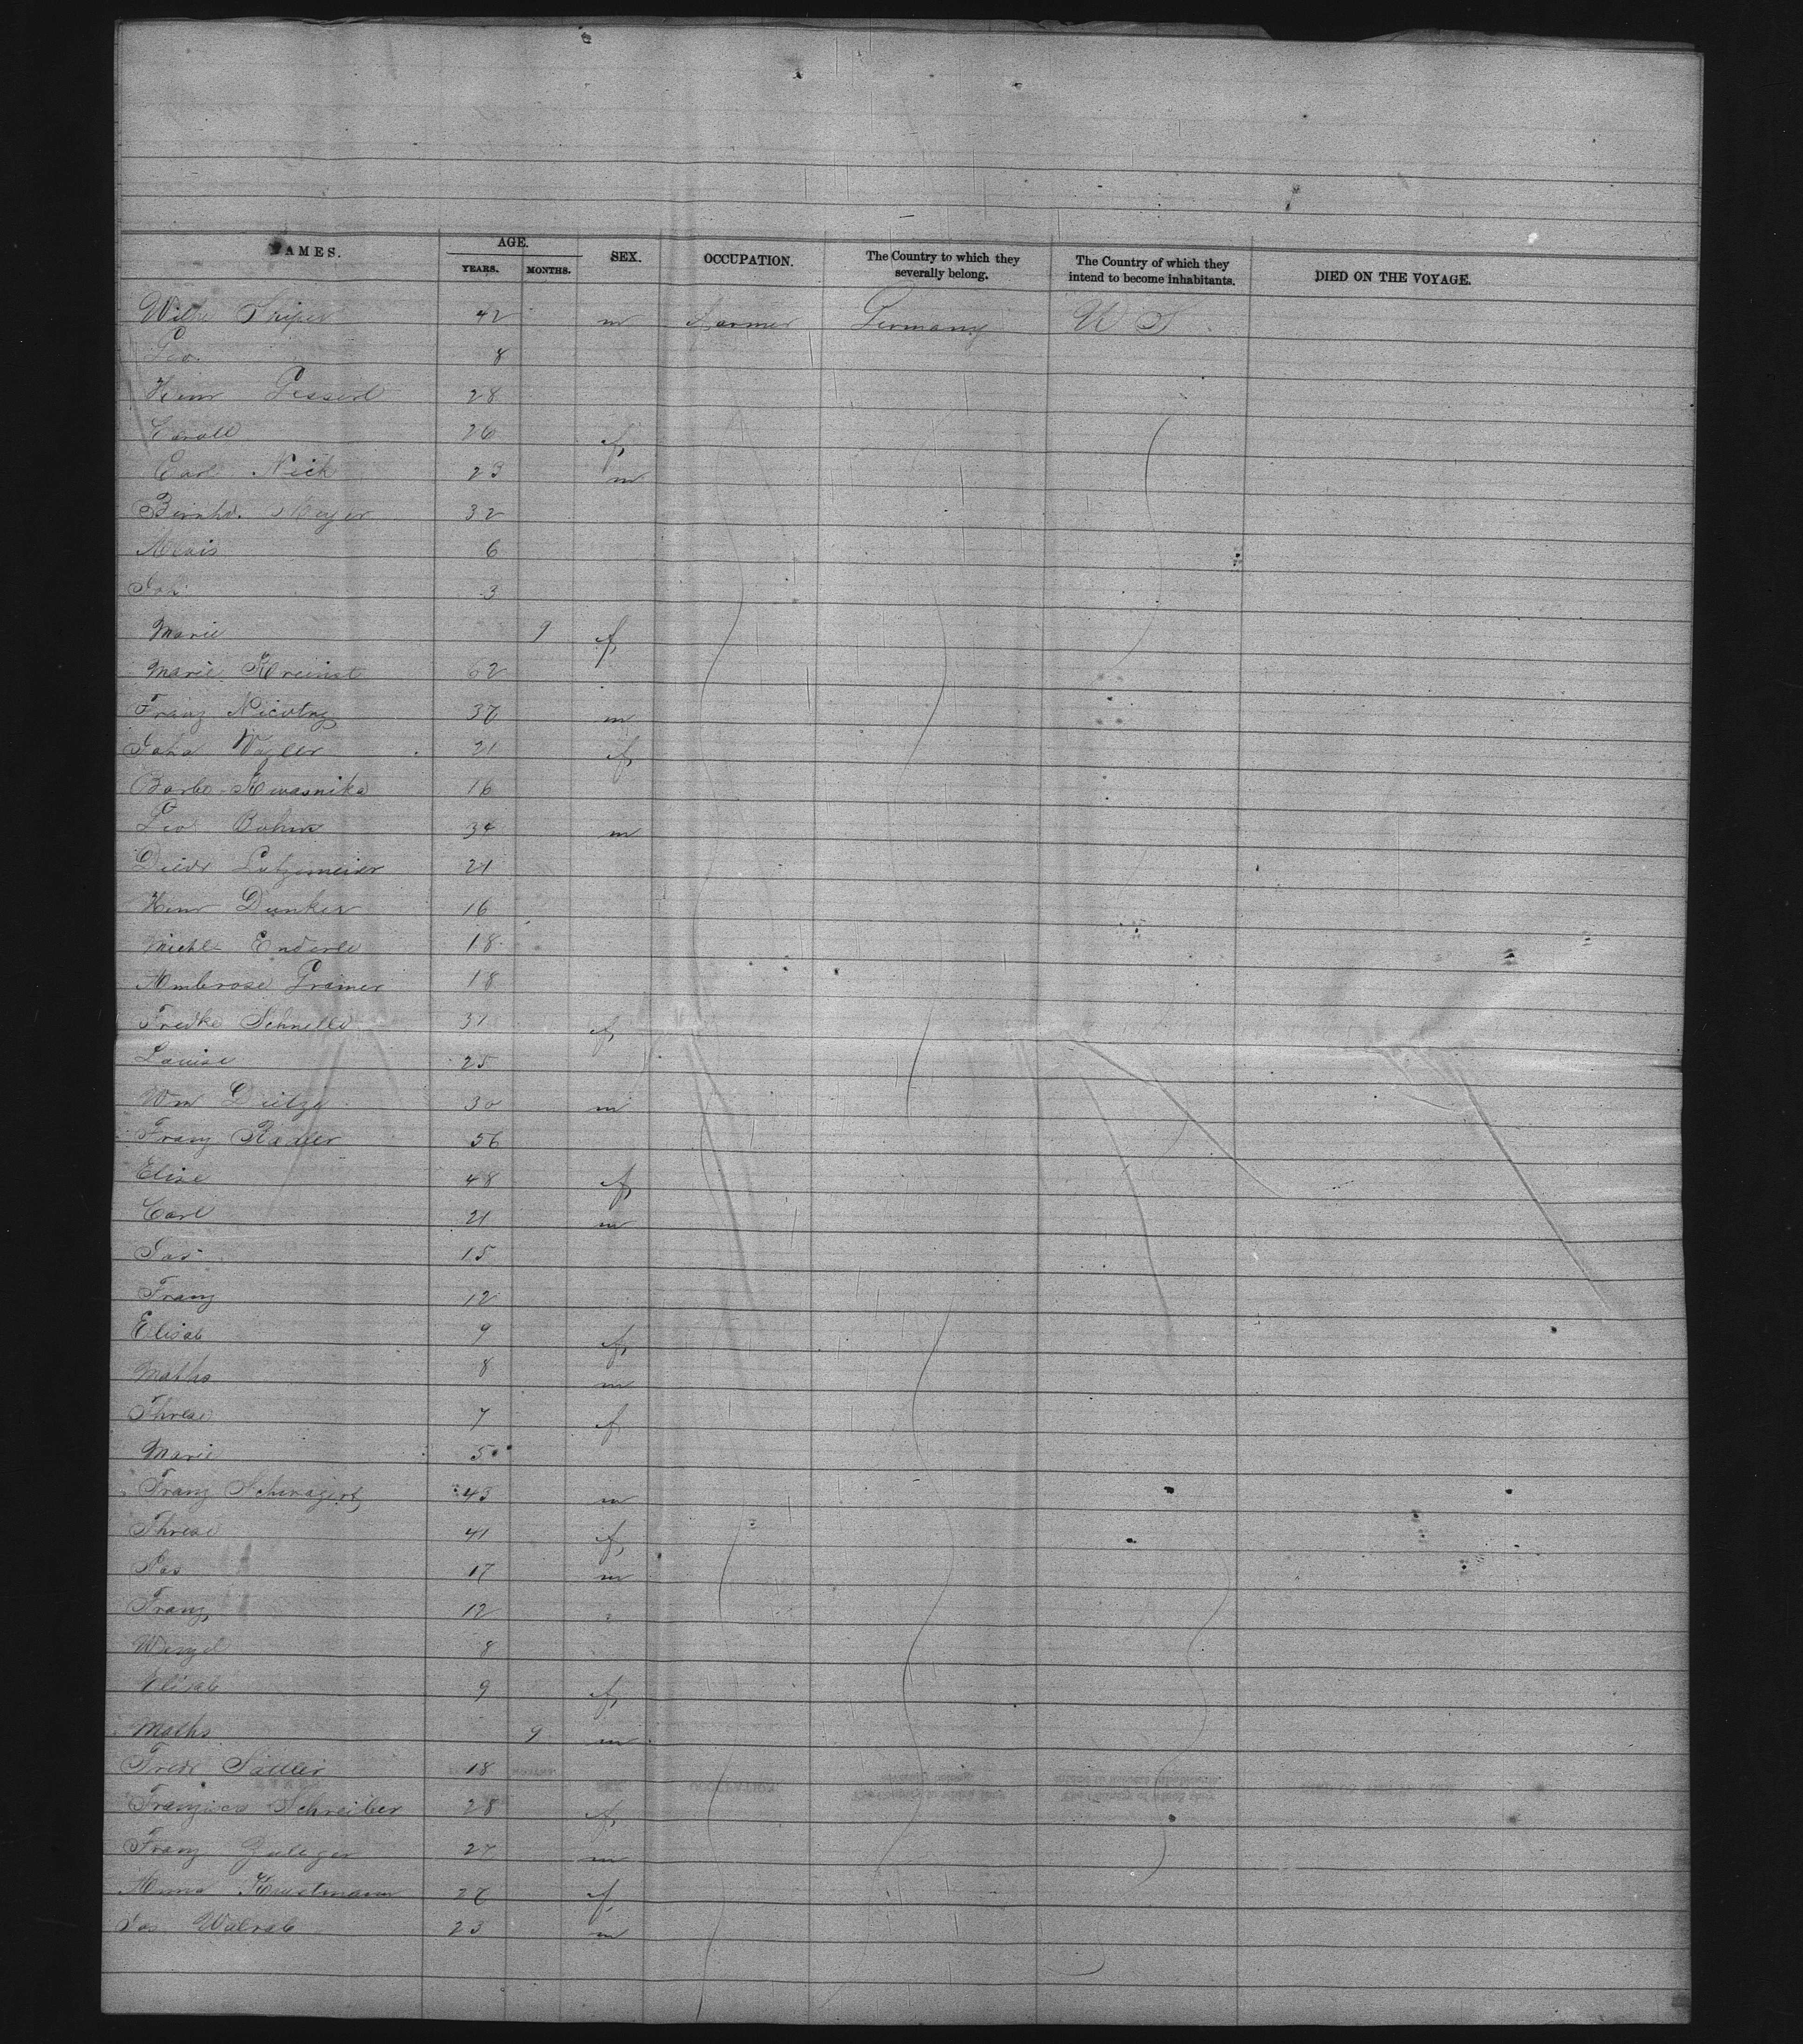 NAMES. AGE. SEX. OCCUPATION. The Country to which they severally belong. The Country of which they intend to become inhabitants. DIED ON THE VOYAGE.
YEARS. MONTHS.
42 m Farmer Germany U S
Geo. 8
Heinr 28
26 f
Carl Nick 23 m
Bernhd. Meyer 32
Alois 6
Joh. 3
Marie 9 f
Marie 62
Franz 37 m
21 f
Barba Kwasnika 16
Geo Bohm 34 m
Diedr Lutzemeier 21
Heinr Dunker 16
Michl Enderle 18
Ambrose Grainer 18
Fredke Schnelle 31 f
Louise 25
Wm Dietze 30 m
Franz Radler 56
Elise 48 f
Carl 21 m
Jos 15
Franz 12
Elisab 9 f
Maths 8 m
Threse 7 f
Marie 5
Franz 43 m
Threse 41 f
Jos 17 m
Franz 12
Wenzel 8
Elisab 9 f
Maths 9 m
Fredr 18
Franzisca Schreiber 28 f
Franz 27 m
Anna 27 f
Jos Walrab 23 m